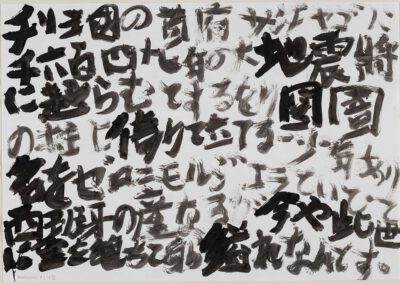 チリ王国の首府サンチャゴに
千六百四十七年の大地震將
に起らむとするをり囹圄
の柱に倚りて立てる一少年あり
名をゼロニモルジエラといひて
西班牙の産なるが今や此世
に望を絶ちて自ら縊れなんとす。